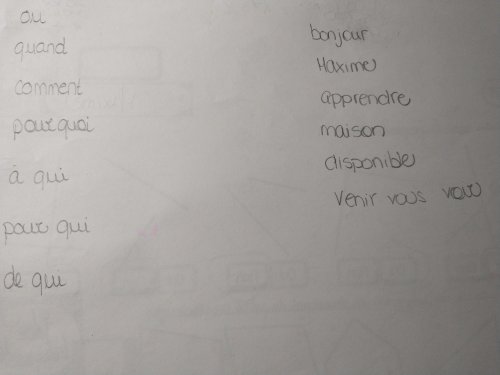 ou
quand
comment
pourquoi
à qui
pour qui
de qui
bonjour
Maxime
apprendre
maison
disponible
venir vous voir